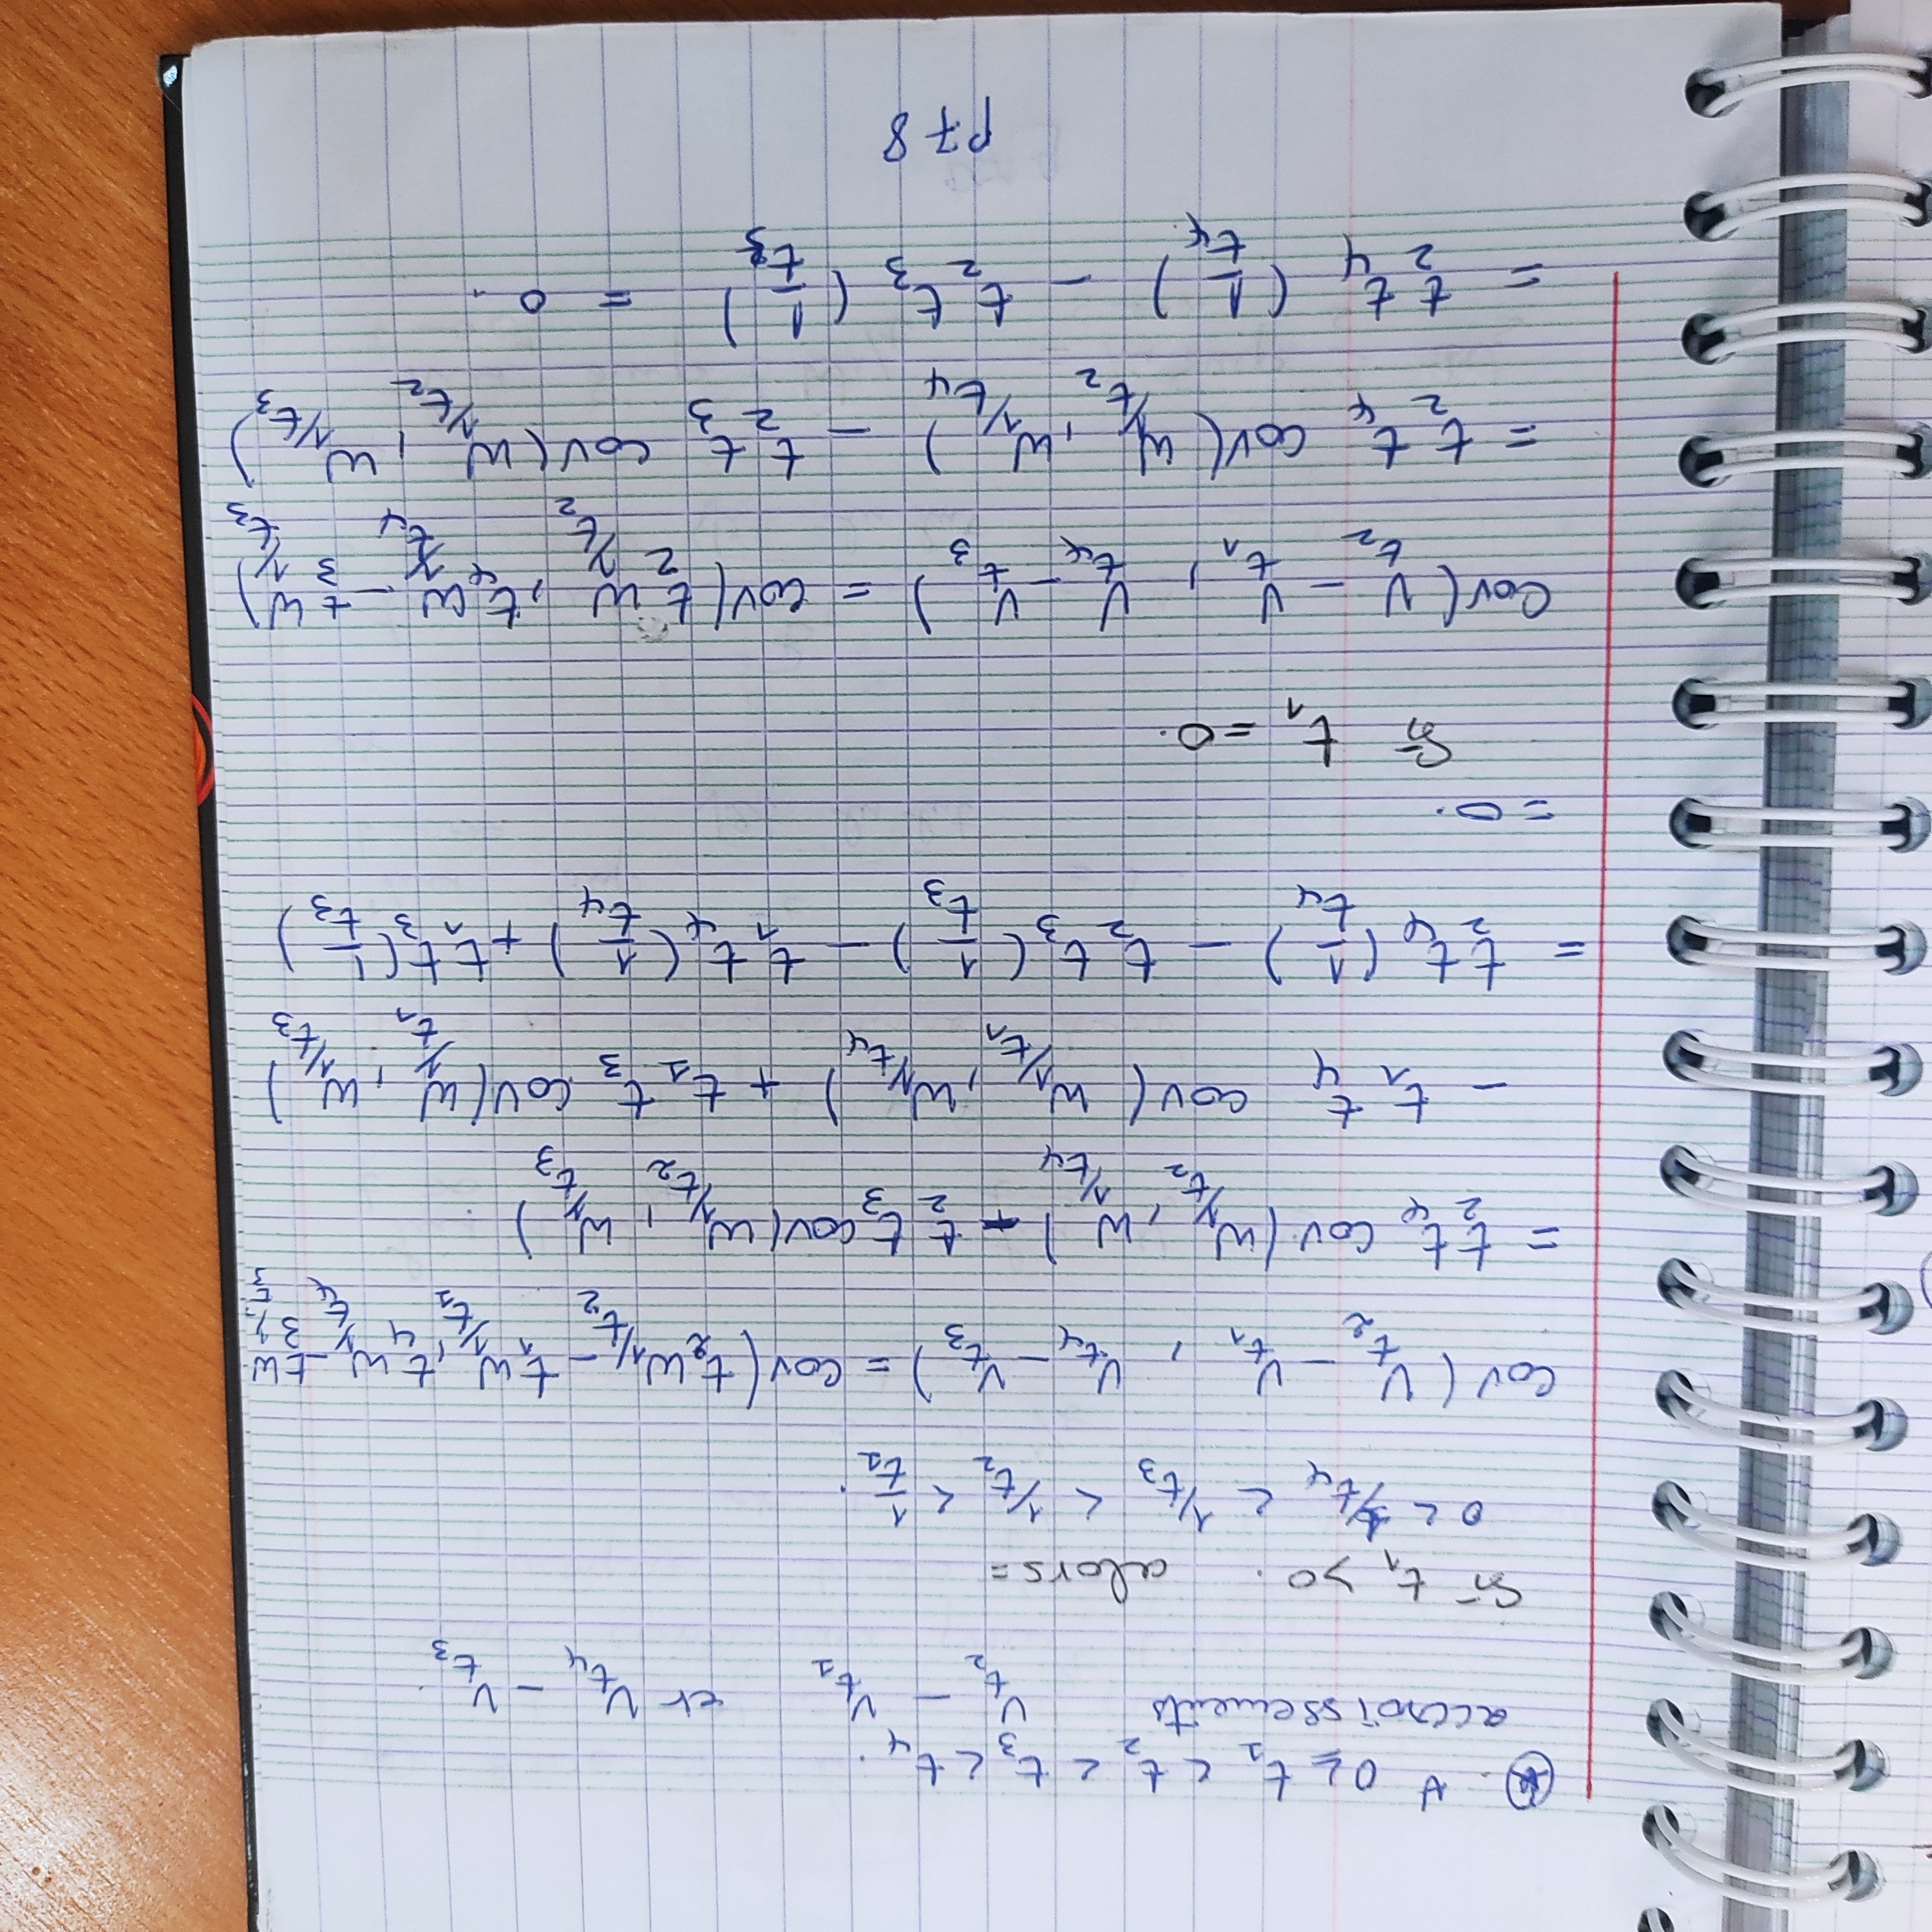 ⊛. ∀ 0 ≥ t₁ < t₂ < t₃ < t₄.
accroissements V_{t₂} - V_{t₁} et V_{t₄} - V_{t₃}.
Si t₁ > 0. alors =
0 < 1/t₄ < 1/t₃ < 1/t₂ < 1/t₁.
cov(V_{t₂} - V_{t₁}, V_{t₄} - V_{t₃}) = cov(t₂W_{1/t₂} - t₁W_{1/t₁}, t₄W_{1/t₄} - t₃W_{1/t₃}
= t₂t₄ cov(W_{1/t₂}, W_{1/t₄}) - t₂t₃ cov(W_{1/t₂}, W_{1/t₃}).
- t₁t₄ cov(W_{1/t₁}, W_{1/t₄}) + t₁t₃ cov(W_{1/t₁}, W_{1/t₃})
= t₂t₄(1/t₄) - t₂t₃(1/t₃) - t₁t₄(1/t₄) + t₁t₃(1/t₃)
= 0.
Si t₁ = 0.
Cov(V_{t₂} - V_{t₁}, V_{t₄} - V_{t₃}) = cov(t₂W_{1/t₂}, t₄W_{1/t₄} - t₃W_{1/t₃})
= t₂t₄ cov(W_{1/t₂}, W_{1/t₄}) - t₂t₃ cov(W_{1/t₂}, W_{1/t₃})
= t₂t₄(1/t₄) - t₂t₃(1/t₃) = 0.
P78